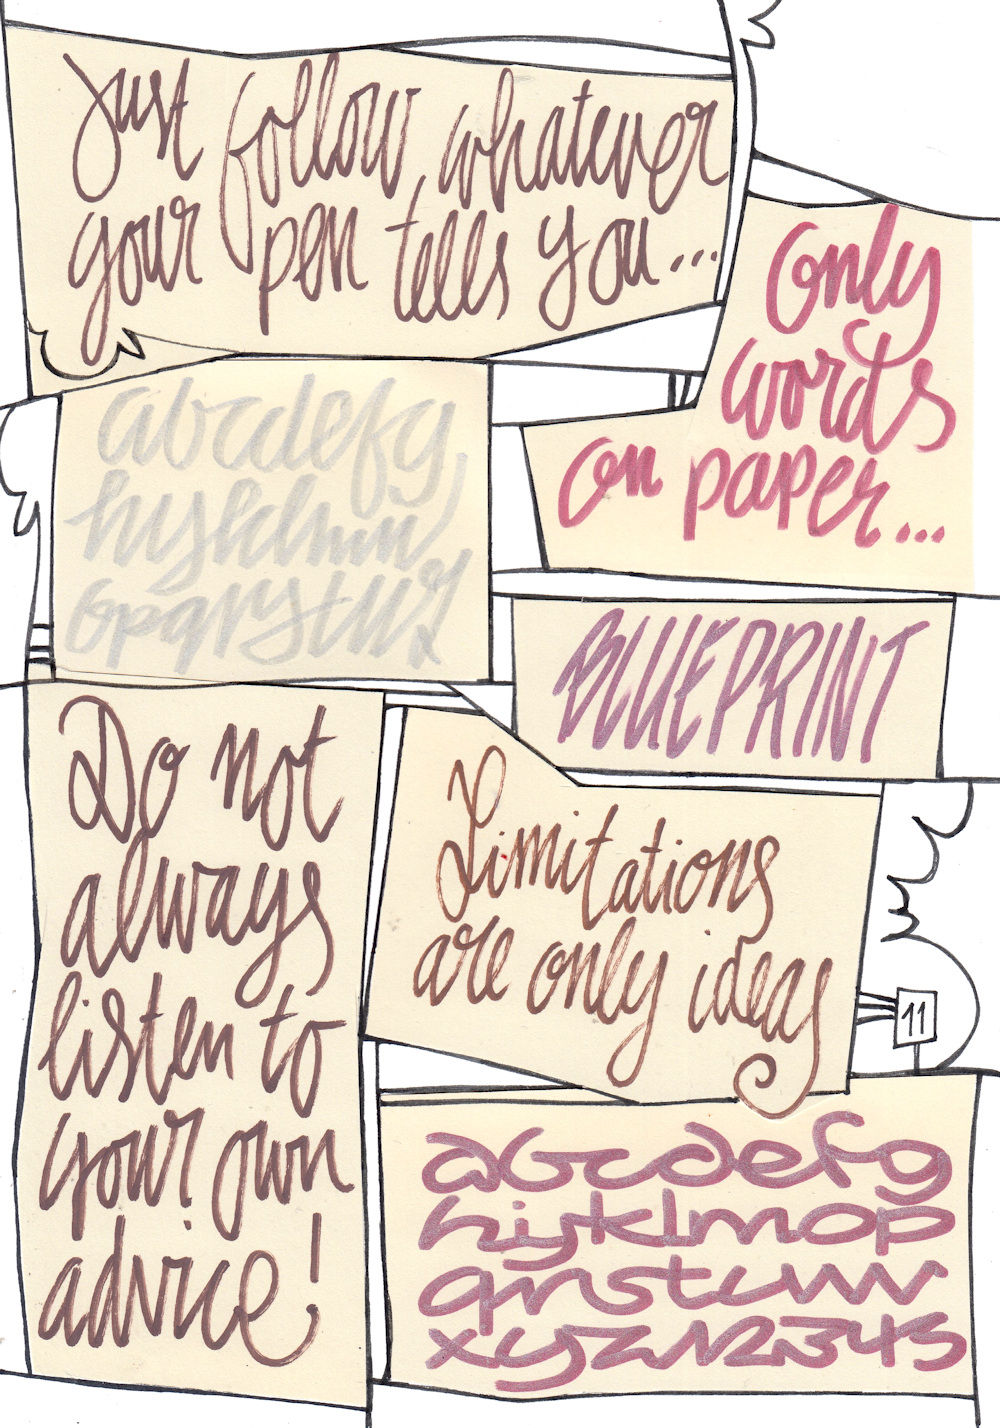 Just follow, whatever
your pen tells you...
Only
words
on paper...
abcdefg,
hijklmn
opqrstuv
x
BLUEPRINT
Do not
always
listen to
your own
advice!
Limitations
are only ideas
11
abcdefg
hijklmnop
qrstuvw
xyz12345